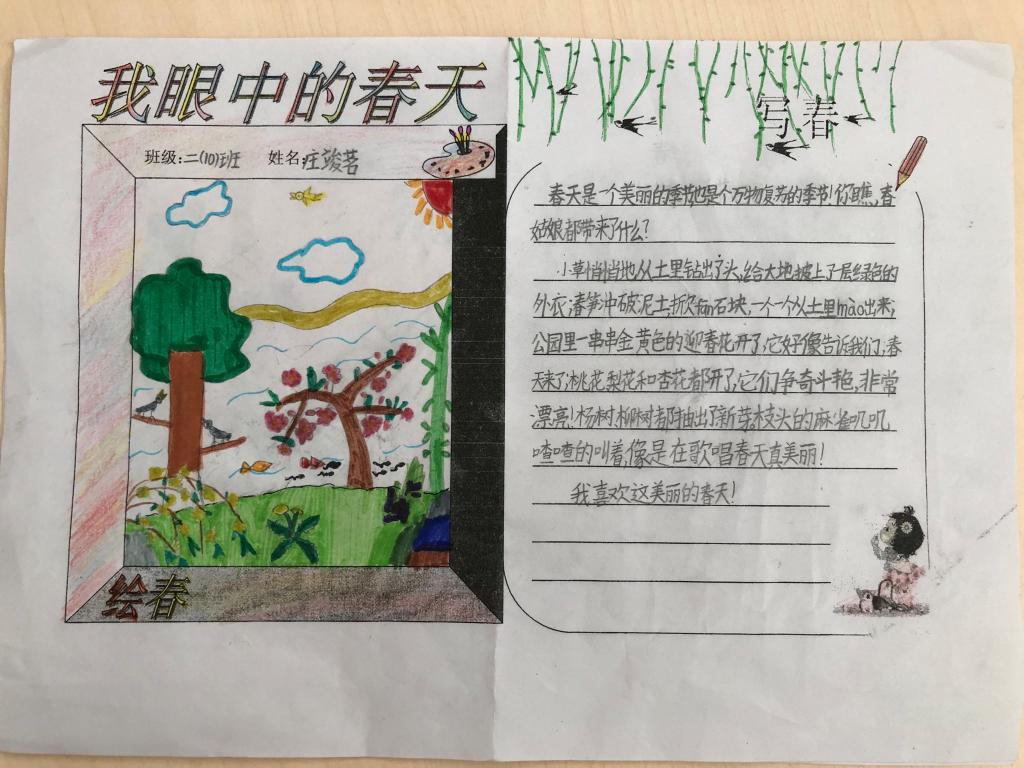 我眼中的春天
班级:二(10)班 姓名:庄竣茗
绘春
写春
春天是一个美丽的季节,也是个万物复苏的季节!你瞧,春
姑娘都带来了什么?
小草悄悄地从土里钻出了头,给大地披上了一层绿色的
外衣;春笋冲破泥土,掀fān石块,一个一个从土里mào出来;
公园里一串串金黄色的迎春花开了,它好像告诉我们:春
天来了;桃花、梨花和杏花都开了,它们争奇斗艳,非常
漂亮!杨树、柳树都抽出了新芽,枝头的麻雀叽叽
喳喳的叫着,像是在歌唱春天真美丽!
我喜欢这美丽的春天!